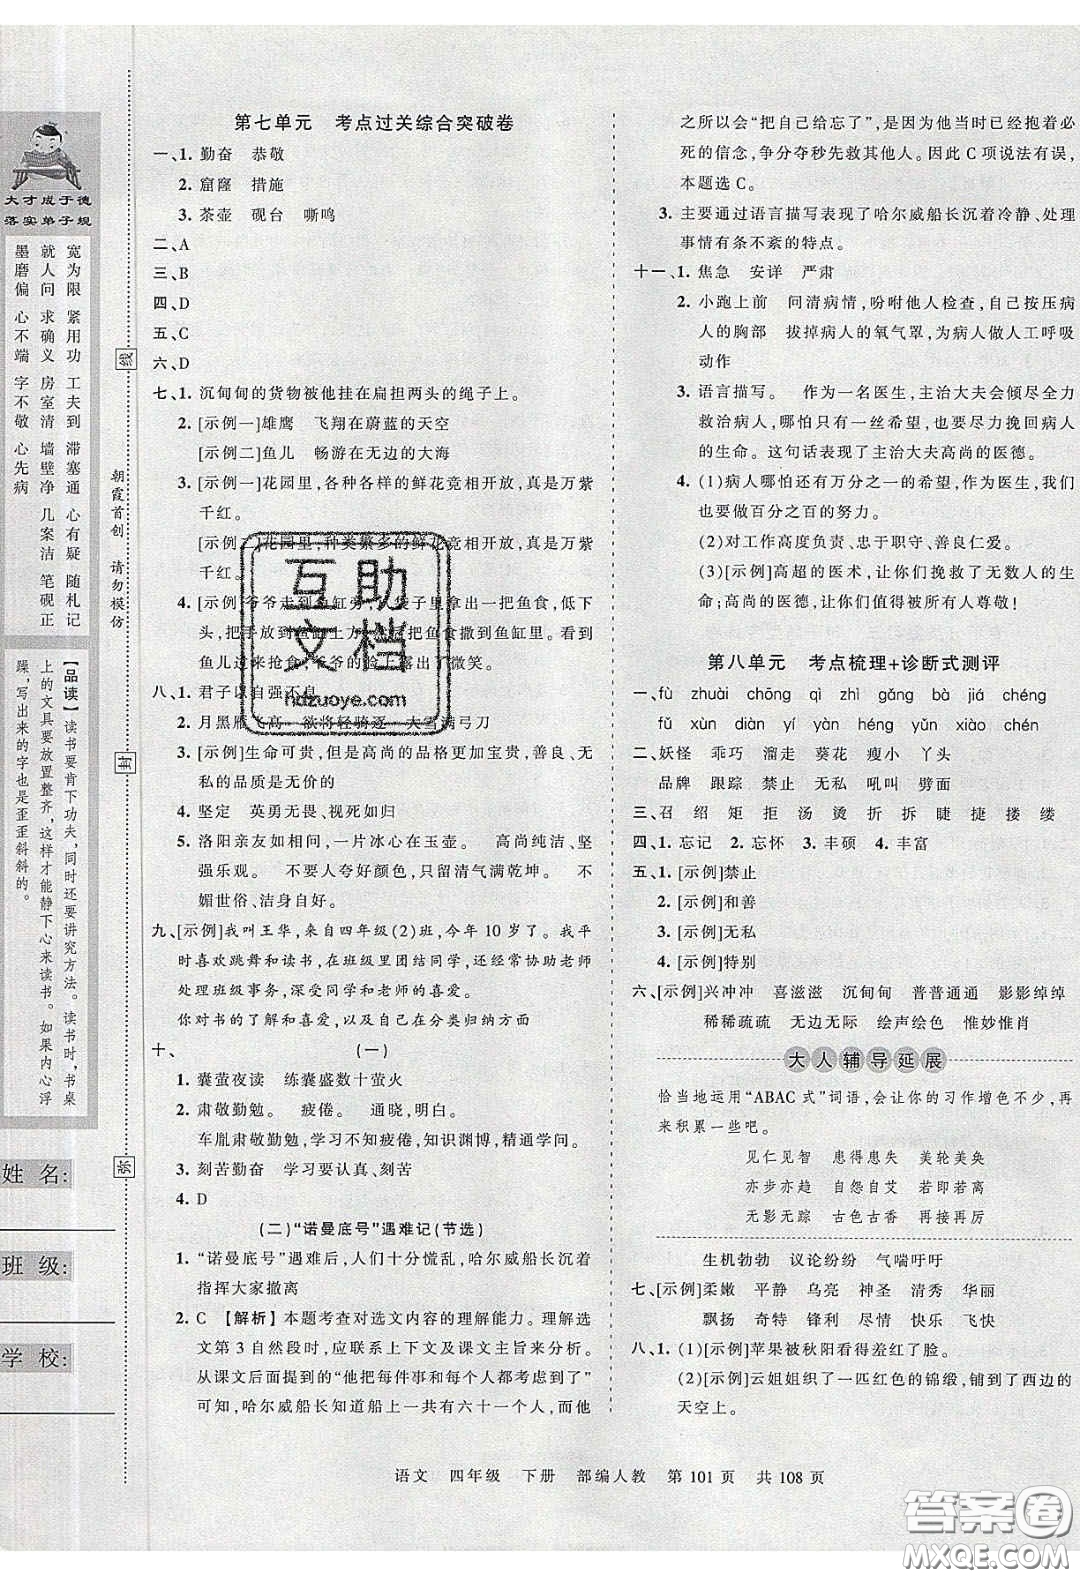 大才成于德
落实弟子规
宽为限 紧用功 工夫到 滞塞通 心有疑 随札记
就人问 求确义 房室清 墙壁净 几案洁 笔砚正
墨磨偏 心不端 字不敬 心先病
【品读】读书要肯下功夫，同时还要讲究方法。读书时，书桌
上的文具要放置整齐，这样才能静下心来读书。如果内心浮
躁，写出来的字也是歪歪斜斜的。
姓名:
班级:
学校:
线
朝霞首创 请勿模仿
封
弥
第七单元 考点过关综合突破卷
一、1. 勤奋 恭敬
2. 窟窿 措施
3. 茶壶 砚台 嘶鸣
二、A
三、B
四、D
五、C
六、D
七、1. 沉甸甸的货物被他挂在扁担两头的绳子上。
2. [示例一]雄鹰 飞翔在蔚蓝的天空
[示例二]鱼儿 畅游在无边的大海
3. [示例一]花园里，各种各样的鲜花竞相开放，真是万紫
千红。
[示例二]花园里，种类繁多的鲜花竞相开放，真是万紫
千红。
4. [示例]爷爷走到鱼缸旁，从袋子里拿出一把鱼食，低下
头，把手放到鱼缸上方，把鱼食撒到鱼缸里。看到
鱼儿过来抢食，爷爷的脸上露出了微笑。
八、1. 君子以自强不息
2. 月黑雁飞高 欲将轻骑逐 大雪满弓刀
3. [示例]生命可贵，但是高尚的品格更加宝贵，善良、无
私的品质是无价的
4. 坚定 英勇无畏、视死如归
5. 洛阳亲友如相问，一片冰心在玉壶。 高尚纯洁、坚
强乐观。 不要人夸好颜色，只留清气满乾坤。 不
媚世俗、洁身自好。
九、[示例]我叫王华，来自四年级(2)班，今年 10 岁了。我平
时喜欢跳舞和读书，在班级里团结同学，还经常协助老师
处理班级事务，深受同学和老师的喜爱。
你对书的了解和喜爱，以及自己在分类归纳方面
十、 (一)
1. 囊萤夜读 练囊盛数十萤火
2. 肃敬勤勉。 疲倦。 通晓，明白。
车胤肃敬勤勉，学习不知疲倦，知识渊博，精通学问。
3. 刻苦勤奋 学习要认真、刻苦
4. D
(二)“诺曼底号”遇难记(节选)
1. “诺曼底号”遇难后，人们十分慌乱，哈尔威船长沉着
指挥大家撤离
2. C 【解析】本题考查对选文内容的理解能力。理解选
文第 3 自然段时，应联系上下文及课文主旨来分析。
从课文后面提到的“他把每件事和每个人都考虑到了”
可知，哈尔威船长知道船上一共有六十一个人，而他
之所以会“把自己给忘了”，是因为他当时已经抱着必
死的信念，争分夺秒先救其他人。因此 C 项说法有误，
本题选 C。
3. 主要通过语言描写表现了哈尔威船长沉着冷静、处理
事情有条不紊的特点。
十一、1. 焦急 安详 严肃
2. 小跑上前 问清病情，吩咐他人检查，自己按压病
人的胸部 拔掉病人的氧气罩，为病人做人工呼吸
动作
3. 语言描写。 作为一名医生，主治大夫会倾尽全力
救治病人，哪怕只有一丝希望，哪怕只能挽回病人
的生命。这句话表现了主治大夫高尚的医德。
4. (1)病人可能还有万分之一的希望，作为医生，我们
也要做百分之百的努力。
(2)对工作高度负责、忠于职守、善良仁爱。
(3)[示例]高超的医术，让你们挽救了无数人的生
命；高尚的医德，让你们值得被所有人尊敬！
第八单元 考点梳理+诊断式测评
一、fù zhuài chōng qì zhì gǎng bà jiá chéng
fǔ xùn diàn yí yàn héng yǔn xiào chén
二、妖怪 乖巧 溜走 葵花 瘦小 丫头
品牌 跟踪 禁止 无私 吼叫 劈面
三、召 绍 矩 拒 汤 烫 折 拆 睫 捷 搂 缕
四、1. 忘记 2. 忘怀 3. 丰硕 4. 丰富
五、1. [示例]禁止
2. [示例]和善
3. [示例]无私
4. [示例]特别
六、[示例]兴冲冲 喜滋滋 沉甸甸 普普通通 影影绰绰
稀稀疏疏 无边无际 绘声绘色 惟妙惟肖
大人辅导延展
恰当地运用“ABAC 式”词语，会让你的习作增色不少，再
来积累一些吧。
见仁见智 患得患失 美轮美奂
亦步亦趋 自怨自艾 若即若离
无影无踪 古色古香 再接再厉
生机勃勃 议论纷纷 气喘吁吁
七、[示例]柔嫩 平静 乌亮 神圣 清秀 华丽
飘扬 奇特 锋利 尽情 快乐 飞快
八、1. (1)[示例]苹果被秋阳看得羞红了脸。
(2)[示例]云姐姐织了一匹红色的锦缎，铺到了西边的
天空上。
语文 四年级 下册 部编人教 第 101 页 共 108 页
互助文档
hdzuoye.com
答案圈
MXQE.COM